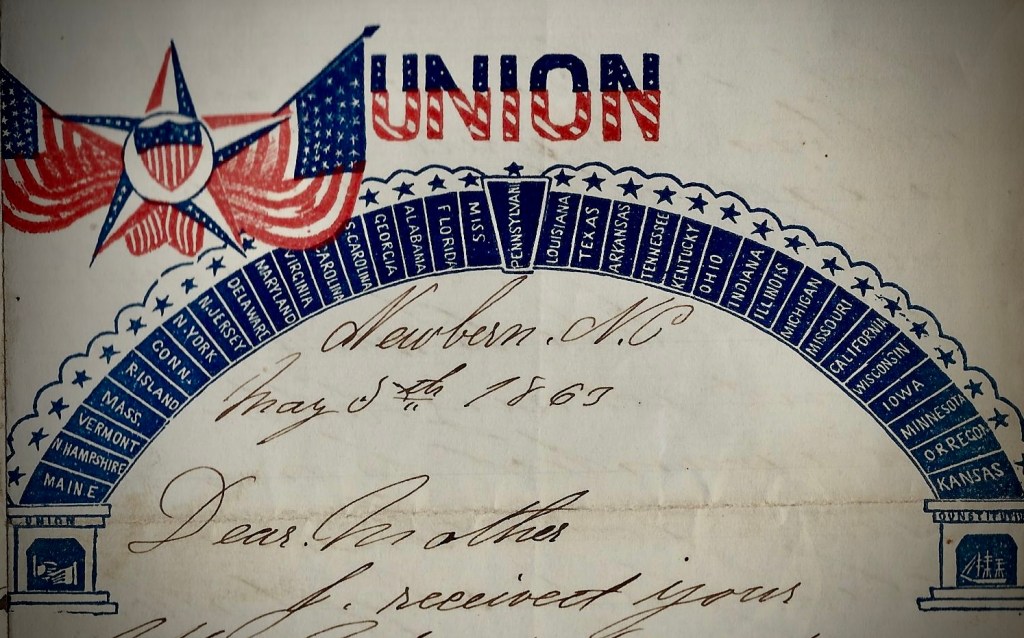 UNION
MAINE
N HAMPSHIRE
VERMONT
MASS.
R.ISLAND
CONN.
N.YORK
N.JERSEY
DELAWARE
MARYLAND
VIRGINIA
CAROLINA
S.CAROLINA
GEORGIA
ALABAMA
FLORIDA
MISS.
PENNSYLVANI
LOUISIANA
TEXAS
ARKANSAS
TENNESSEE
KENTUCKY
OHIO
INDIANA
ILLINOIS
MICHIGAN
MISSOURI
CALIFORNIA
WISCONSIN
IOWA
MINNESOTA
ORREGON
KANSAS
UNION
Newbern. N.C
May 5th 1863
Dear. Mother
I. received your